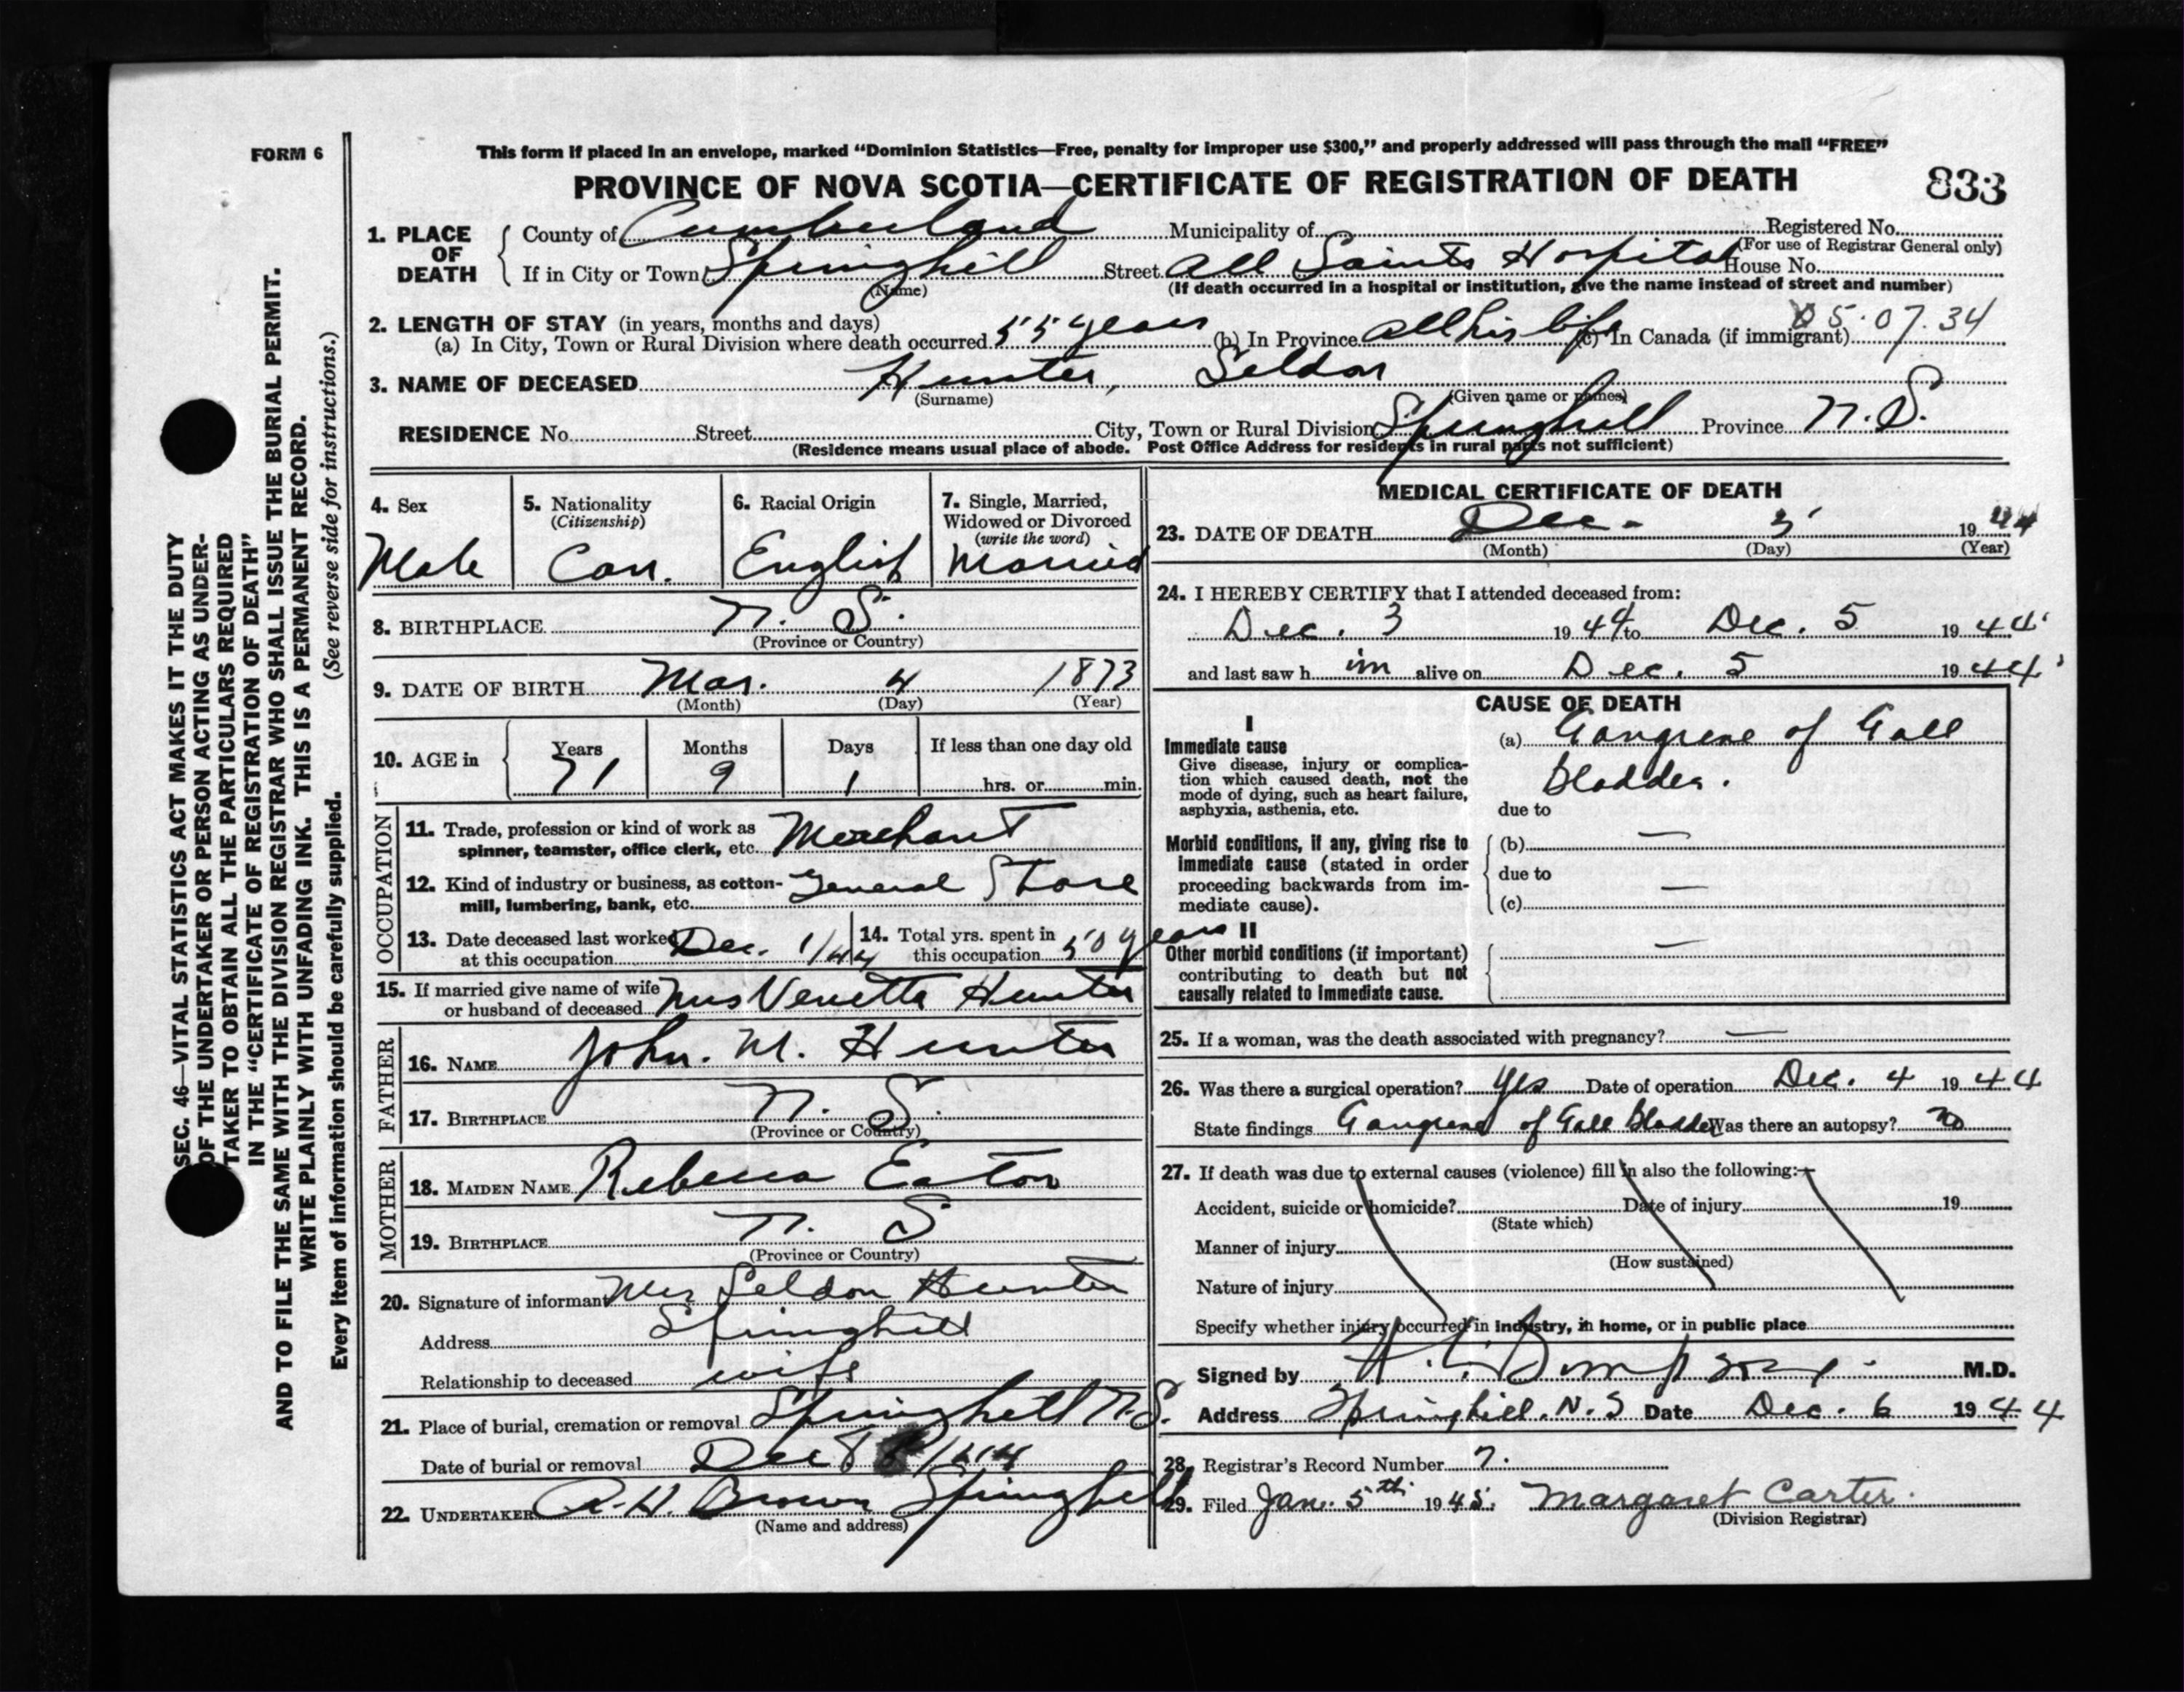 FORM 6
This form if placed in an envelope, marked "Dominion Statistics—Free, penalty for improper use $300," and properly addressed will pass through the mail "FREE"
PROVINCE OF NOVA SCOTIA—CERTIFICATE OF REGISTRATION OF DEATH 833
1. PLACE OF DEATH
County of Cumberland Municipality of Registered No.
(For use of Registrar General only)
If in City or Town Springhill Street All Saints Hospital House No.
(Name) (If death occurred in a hospital or institution, give the name instead of street and number)
2. LENGTH OF STAY (in years, months and days) 05.07.34
(a) In City, Town or Rural Division where death occurred 55 years (b) In Province All his life (c) In Canada (if immigrant)
3. NAME OF DECEASED Hunter, Seldon
(Surname) (Given name or names)
RESIDENCE No. Street City, Town or Rural Division Springhill Province N.S.
(Residence means usual place of abode. Post Office Address for residents in rural parts not sufficient)
4. Sex Male
5. Nationality (Citizenship) Can.
6. Racial Origin English
7. Single, Married, Widowed or Divorced (write the word) Married
8. BIRTHPLACE N. S.
(Province or Country)
9. DATE OF BIRTH Mar. 4 1873
(Month) (Day) (Year)
10. AGE in Years 71 Months 9 Days 1 If less than one day old hrs. or min.
OCCUPATION
11. Trade, profession or kind of work as spinner, teamster, office clerk, etc. Merchant
12. Kind of industry or business, as cotton-mill, lumbering, bank, etc. General Store
13. Date deceased last worked at this occupation Dec. 1/44
14. Total yrs. spent in this occupation 50 years
15. If married give name of wife or husband of deceased Mrs Venetta Hunter
FATHER
16. NAME John. M. Hunter
17. BIRTHPLACE N. S.
(Province or Country)
MOTHER
18. MAIDEN NAME Rebecca Eaton
19. BIRTHPLACE N. S
(Province or Country)
20. Signature of informant Mrs Seldon Hunter
Address Springhill
Relationship to deceased wife
21. Place of burial, cremation or removal Springhill N.S.
Date of burial or removal Dec 8 /44
22. UNDERTAKER R.H. Brown Springhill
(Name and address)
MEDICAL CERTIFICATE OF DEATH
23. DATE OF DEATH Dec. 5 1944
(Month) (Day) (Year)
24. I HEREBY CERTIFY that I attended deceased from:
Dec. 3 1944 to Dec. 5 1944
and last saw him alive on Dec. 5 1944
CAUSE OF DEATH
I
Immediate cause
Give disease, injury or complica-
tion which caused death, not the
mode of dying, such as heart failure,
asphyxia, asthenia, etc.
(a) Gangrene of Gall
Bladder.
due to
Morbid conditions, if any, giving rise to
immediate cause (stated in order
proceeding backwards from im-
mediate cause).
(b) —
due to
(c) —
II
Other morbid conditions (if important)
contributing to death but not
causally related to immediate cause.
—
25. If a woman, was the death associated with pregnancy? —
26. Was there a surgical operation? Yes Date of operation Dec. 4 1944
State findings Gangrene of Gall Bladder Was there an autopsy? No
27. If death was due to external causes (violence) fill in also the following:
Accident, suicide or homicide? Date of injury 19
(State which)
Manner of injury
(How sustained)
Nature of injury
Specify whether injury occurred in industry, in home, or in public place
Signed by M.D.
Address Springhill. N. S Date Dec. 6 1944
28. Registrar's Record Number 7.
29. Filed Jan. 5th 1945. Margaret Carter.
(Division Registrar)
SEC. 46—VITAL STATISTICS ACT MAKES IT THE DUTY
OF THE UNDERTAKER OR PERSON ACTING AS UNDER-
TAKER TO OBTAIN ALL THE PARTICULARS REQUIRED
IN THE "CERTIFICATE OF REGISTRATION OF DEATH"
AND TO FILE THE SAME WITH THE DIVISION REGISTRAR WHO SHALL ISSUE THE BURIAL PERMIT.
WRITE PLAINLY WITH UNFADING INK. THIS IS A PERMANENT RECORD.
Every item of information should be carefully supplied. (See reverse side for instructions.)